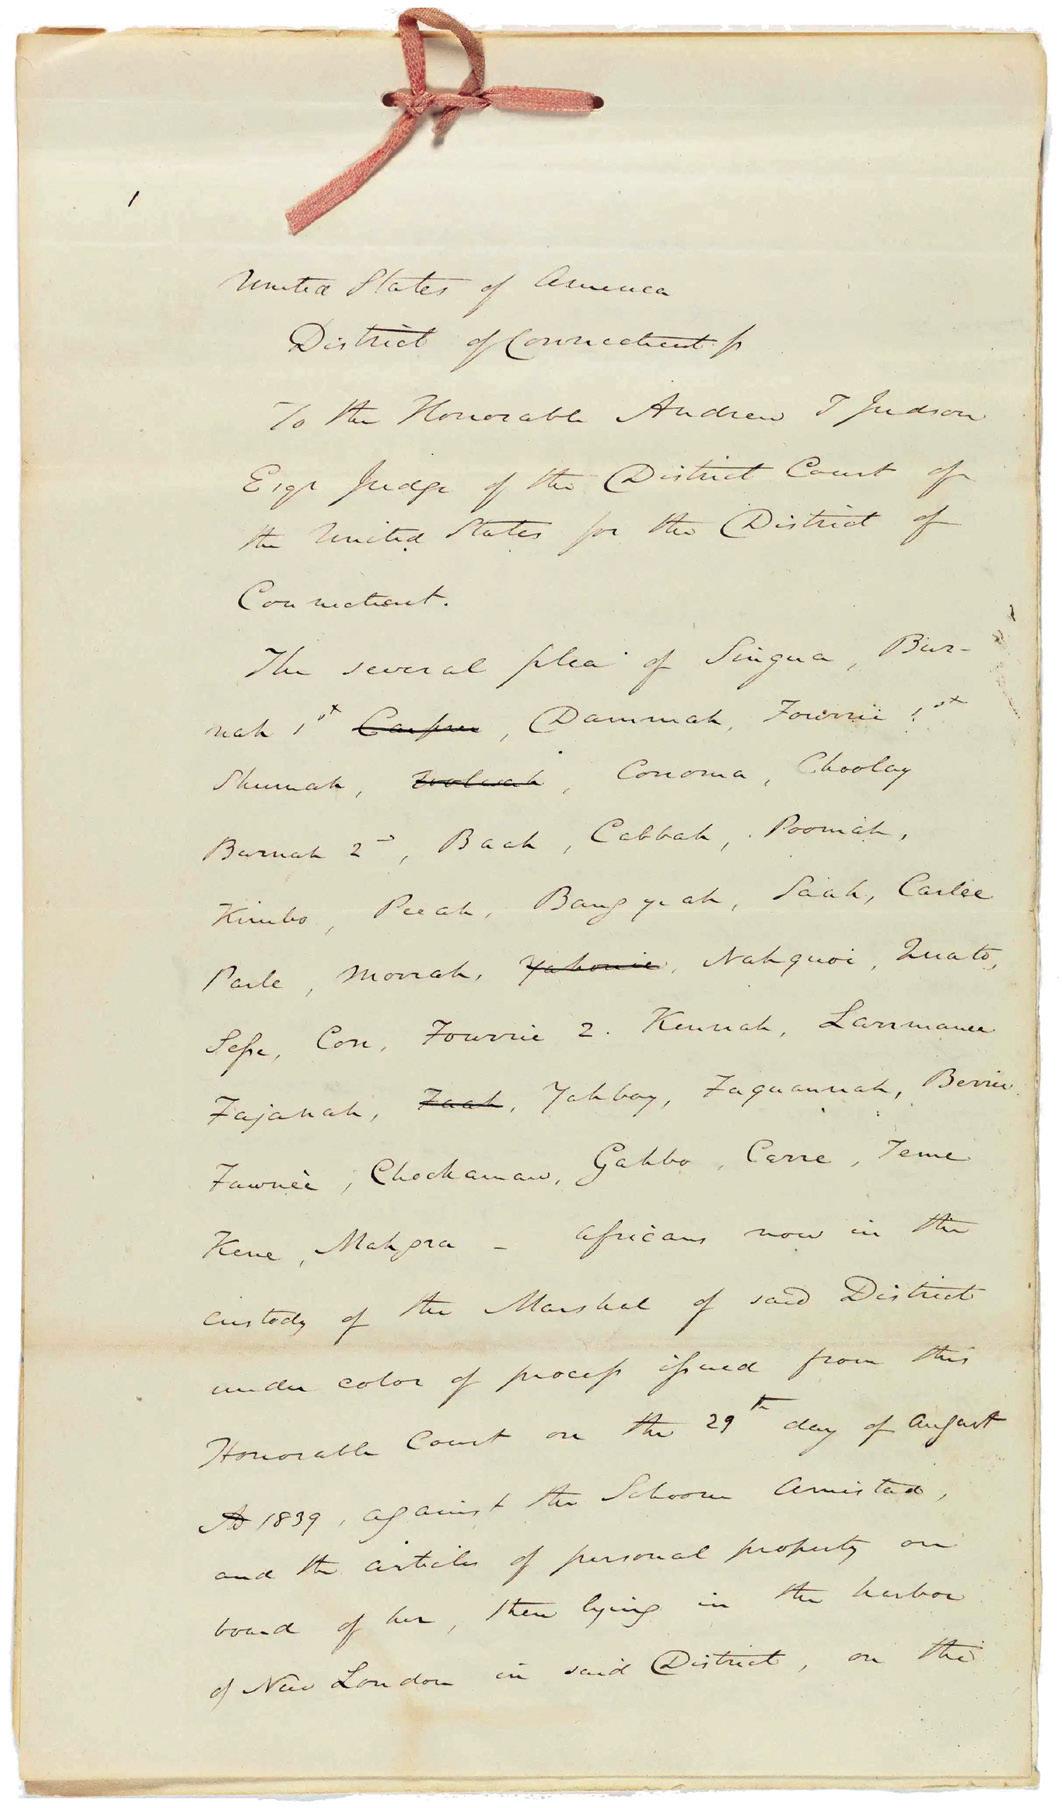 1
United States of America
District of Connecticut ss
To the Honorable Andrew T Judson
Esqr Judge of the District Court of
the United States for the District of
Connecticut.
The several plea of Singua, Bur-
nah 1st , Dammah, Fourrie 1st
Shumah, , Conoma, Choolay
Burnah 2d, Baah, Cabbah, Poomah,
Kimbo, Peeah, Bangyeah, Saah, Carlee
Parle, Morrah, Yahonie, Nahquoi, Quato,
Sesse, Con, Fourrie 2. Kennah, Lammanee
Fajanah, Faah, Yahboy, Faquannah, Berrie
Fawnee, Chockamaw, Gahbo, Carre, Teme
Kene, Mahgra - africans now in the
custody of the Marshal of said District
under color of process issued from this
Honorable Court on the 29th day of August
AD 1839, against the Schooner Amistad,
and the articles of personal property on
board of her, then lying in the harbor
of New London in said District, on the